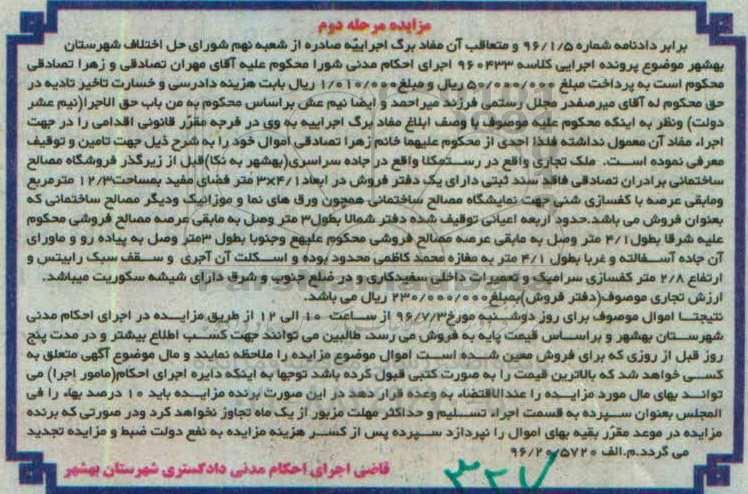 مزایده مرحله دوم
برابر دادنامه شماره ۹۶/۱/۵ و متعاقب آن مفاد برگ اجراییّه صادره از شعبه نهم شورای حل اختلاف شهرستان
بهشهر موضوع پرونده اجرایی کلاسه ۹۶۰۴۳۳ اجرای احکام مدنی شورا محکوم علیه آقای مهران تصادقی و زهرا تصادقی
محکوم است به پرداخت مبلغ ۵۰/۰۰۰/۰۰۰ ریال و مبلغ۱/۰۱۰/۰۰۰ ریال بابت هزینه دادرسی و خسارت تاخیر تادیه در
حق محکوم له آقای میرصفدر مجلل رستمی فرزند میراحمد و ایضا نیم عش براساس محکوم به من باب حق الاجرا(نیم عشر
دولت) ونظر به اینکه محکوم علیه موصوف با وصف ابلاغ مفاد برگ اجراییه به وی در فرجه مقرّر قانونی اقدامی را در جهت
اجراء مفاد آن معمول نداشته فلذا احدی از محکوم علیهما خانم زهرا تصادقی اموال خود را به شرح ذیل جهت تامین و توقیف
معرفی نموده است. ملک تجاری واقع در رستمکلا واقع در جاده سراسری(بهشهر به نکا)قبل از زیرگذر فروشگاه مصالح
ساختمانی برادران تصادقی فاقد سند ثبتی دارای یک دفتر فروش در ابعاد۳×۴/۱ متر فضای مفید بمساحت۱۲/۳ مترمربع
ومابقی عرصه با کفسازی شنی جهت نمایشگاه مصالح ساختمانی همچون ورق های نما و موزائیک ودیگر مصالح ساختمانی که
بعنوان فروش می باشد.حدود اربعه اعیانی توقیف شده دفتر شمالا بطول۳ متر وصل به مابقی عرصه مصالح فروشی محکوم
علیه شرقا بطول۴/۱ متر وصل به مابقی عرصه مصالح فروشی محکوم علیهع وجنوبا بطول ۳متر وصل به پیاده رو و ماورای
آن جاده آسفالته و غربا بطول ۴/۱ متر به مغازه محمد کاظمی محدود بوده و اسکلت آن آجری و سقف سبک رابیتس و
ارتفاع ۲/۸ متر کفسازی سرامیک و تعمیرات داخلی سفیدکاری و در ضلع جنوب و شرق دارای شیشه سکوریت میباشد.
ارزش تجاری موصوف(دفتر فروش)بمبلغ۲۳۰/۰۰۰/۰۰۰ ریال می باشد.
نتیجتا اموال موصوف برای روز دوشنبه مورخ۹۶/۷/۳ از ساعت ۱۰ الی ۱۲ از طریق مزایده در اجرای احکام مدنی
شهرستان بهشهر و براساس قیمت پایه به فروش می رسد. طالبین می توانند جهت کسب اطلاع بیشتر و در مدت پنج
روز قبل از روزی که برای فروش معین شده است اموال موضوع مزایده را ملاحظه نمایند و مال موضوع آگهی متعلق به
کسی خواهد شد که بالاترین قیمت را به صورت کتبی قبول کرده باشد توجها به اینکه دایره اجرای احکام(مامور اجرا) می
تواند بهای مال مورد مزایده را عندالاقتضاء به وعده قرار دهد در این صورت برنده مزایده باید ۱۰ درصد بهاء را فی
المجلس بعنوان سپرده به قسمت اجراء تسلیم و حداکثر مهلت مزبور از یک ماه تجاوز نخواهد کرد ودر صورتی که برنده
مزایده در موعد مقرّر بقیه بهای اموال را نپردازد سپرده پس از کسر هزینه مزایده به نفع دولت ضبط و مزایده تجدید
می گردد.م.الف ۹۶/۲۰/۵۷۲۰
قاضی اجرای احکام مدنی دادگستری شهرستان بهشهر